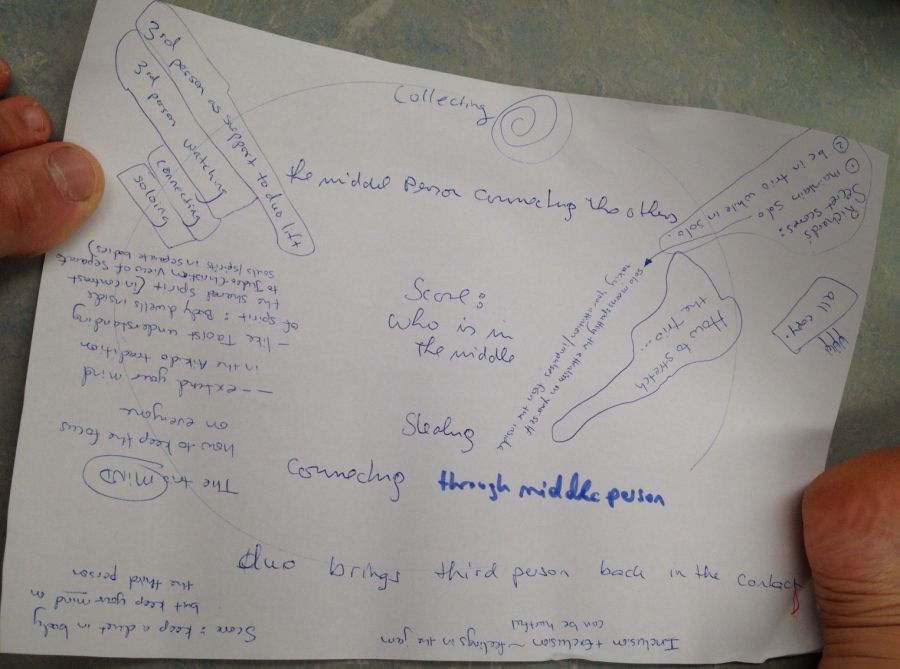 3rd person as support to duo lift
3rd person watching
connecting
soloing
Collecting
the middle person connecting the others
Richards'
secret scores:
① maintain solo
② be in trio while in solo.
solo means putting the attention on yourself
taking your attention/impulses from the inside
How to stretch
the trio...
all copy.
Score:
who is in
the middle
Stealing
Connecting through middle person
duo brings third person back in the contact
The trio MIND
how to keep the focus
on everyone
— extend your mind
in the Aikido tradition
– like Taoist understanding
of spirit: Body dwells inside
the shared spirit (in contrast
to Judeo Christian view of separate
souls/spirits in separate bodies)
Score: keep a duet in body
but keep your mind on
the third person
Inclusion + Exclusion ~ feelings in the jam
can be hurtful